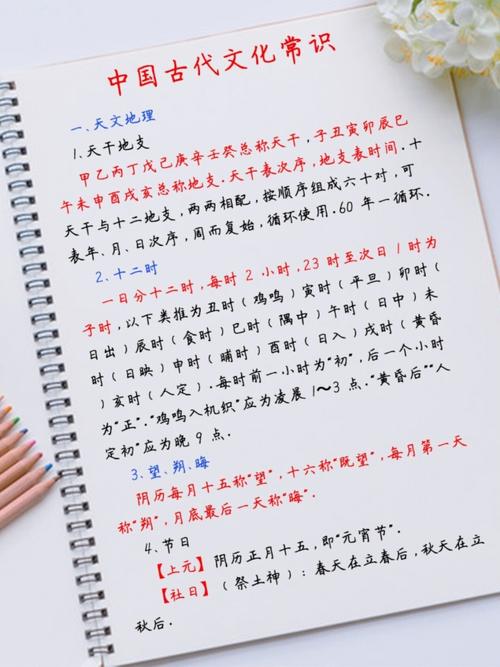 中国古代文化常识
一.天文地理
1.天干地支
甲乙丙丁戊己庚辛壬癸总称天干，子丑寅卯辰巳
午未申酉戌亥总称地支.天干表次序，地支表时间.十
天干与十二地支，两两相配，按顺序组成六十对，可
表年、月、日次序，周而复始，循环使用.60年一循环.
2.十二时
一日分十二时，每时2小时，23时至次日1时为
子时，以下类推为丑时（鸡鸣）寅时（平旦）卯时（
日出）辰时（食时）巳时（隅中）午时（日中）未
时（日映）申时（晡时）酉时（日入）戌时（黄昏
）亥时（人定）.每时前一小时为“初”，后一个小时
为“正”.“鸡鸣入机织”应为凌晨1～3点.“黄昏后”“人
定初”应为晚9点.
3.望、朔、晦
阴历每月十五称“望”，十六称“既望”，每月第一天
称“朔”，月底最后一天称“晦”.
4.节日
【上元】阴历正月十五，即“元宵节”.
【社日】（祭土神）：春天在立春后，秋天在立
秋后.